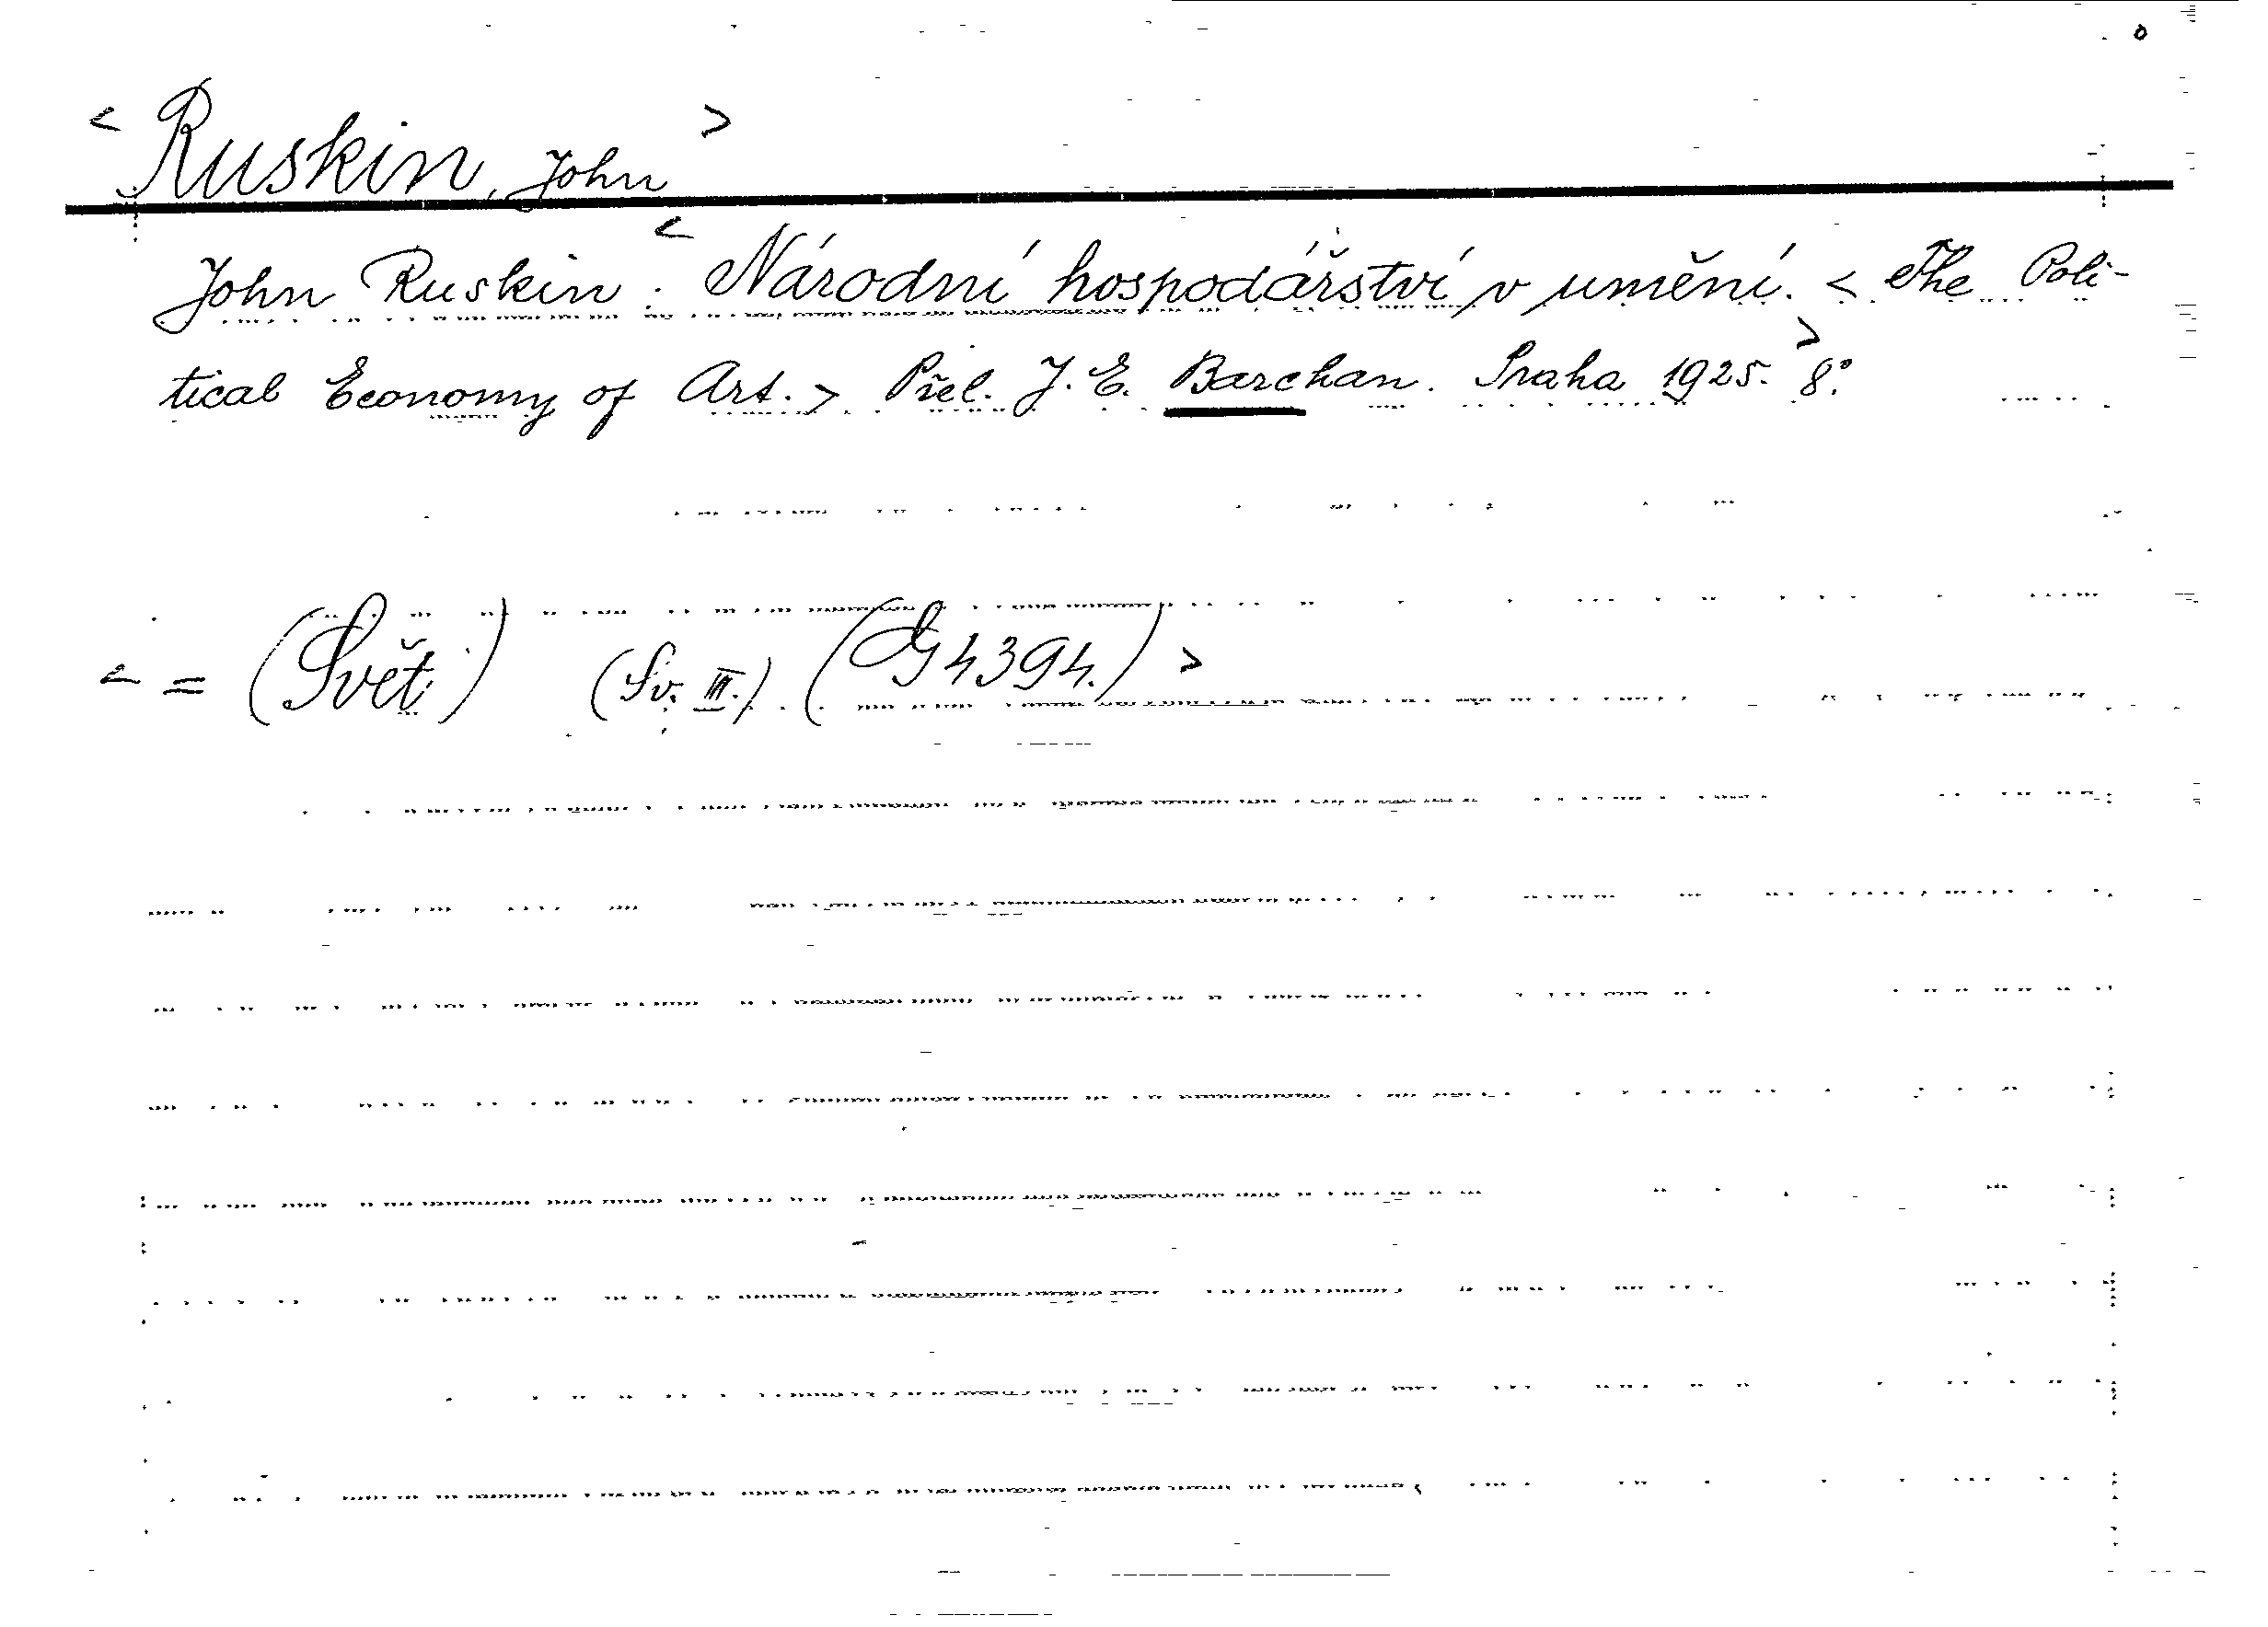 < Ruskin, John >
John Ruskin: < Národní hospodářství v umění. < The Poli-
tical Economy of Art. > Přel. J. E. Barchan. Praha 1925. > 8°.
< = (Svět) (Sv. III.) (G 4394.) >